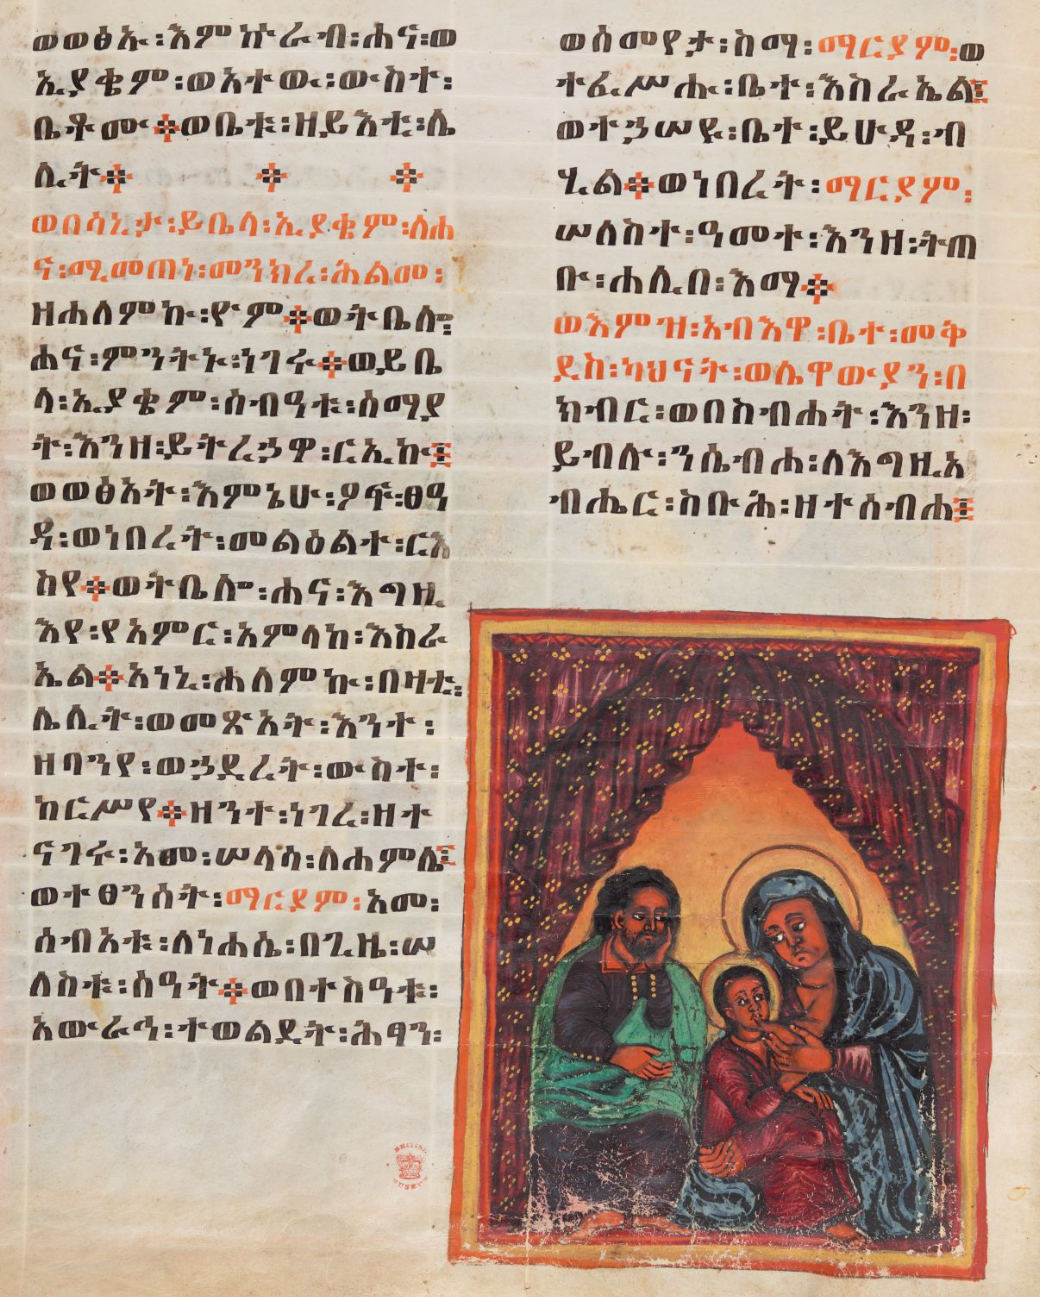 ወወፅኡ፡እምኵራብ፡ሐና፡ወ
ኢያቄም፡ወአተዉ፡ውስተ፡
ቤቶሙ፨ወቤቱ፡ዘይእቲ፡ሌ
ሊት፨ ፨ ፨
ወበሳኒታ፡ይቤላ፡ኢያቄም፡ለሐ
ና፡ሚመጠነ፡መንክረ፡ሕልመ፡
ዘሐለምኩ፡ዮም፨ወትቤሎ፡
ሐና፡ምንትኑ፡ነገሩ፨ወይቤ
ላ፡ኢያቄም፡ሰብዓቱ፡ሰማያ
ት፡እንዘ፡ይትረኃዋ፡ርኢኩ፤
ወወፅአት፡እምኔሁ፡ዖፍ፡ፀዓ
ዳ፡ወነበረት፡መልዕልተ፡ርእ
ስየ፨ወትቤሎ፡ሐና፡እግዚ
እየ፡የአምር፡አምላከ፡እስራ
ኤል፨አነኒ፡ሐለምኩ፡በዛቲ፡
ሌሊት፡ወመጽአት፡እንተ፡
ዘባንየ፡ወኃደረት፡ውስተ፡
ከርሥየ፨ዘንተ፡ነገረ፡ዘተ
ናገሩ፡አመ፡ሠላሳ፡ለሐምሌ፤
ወተፀንሰት፡ማርያም፡አመ፡
ሰብአቱ፡ለነሐሴ፡በጊዜ፡ሠ
ለስቱ፡ሰዓት፨ወበተስዓቱ፡
አውራኅ፡ተወልደት፡ሕፃን፡
ወሰመየታ፡ስማ፡ማርያም፡ወ
ተፈሥሑ፡ቤተ፡እስራኤል፤
ወተኃሠዩ፡ቤተ፡ይሁዳ፡ብ
ሂል፨ወነበረት፡ማርያም፡
ሠለስተ፡ዓመተ፡እንዘ፡ትጠ
ቡ፡ሐሊበ፡እማ፨
ወእምዝ፡አብእዋ፡ቤተ፡መቅ
ደስ፡ካህናት፡ወሌዋውያን፡በ
ክብር፡ወበስብሐት፡እንዘ፡
ይብሉ፡ንሴብሐ፡ለእግዚአ
ብሔር፡ስቡሕ፡ዘተሰብሐ፤